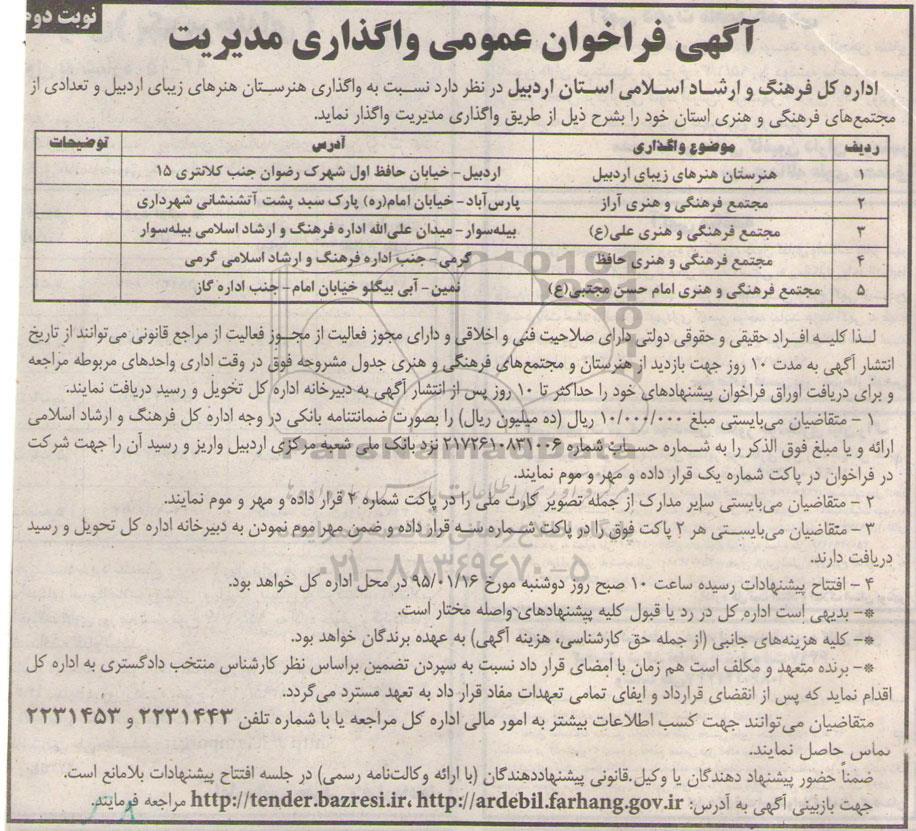 نوبت دوم
آگهی فراخوان عمومی واگذاری مدیریت
اداره کل فرهنگ و ارشاد اسلامی استان اردبیل در نظر دارد نسبت به واگذاری هنرستان هنرهای زیبای اردبیل و تعدادی از
مجتمع‌های فرهنگی و هنری استان خود را بشرح ذیل از طریق واگذاری مدیریت واگذار نماید.
ردیف موضوع واگذاری آدرس توضیحات
۱ هنرستان هنرهای زیبای اردبیل اردبیل - خیابان حافظ اول شهرک رضوان جنب کلانتری ۱۵
۲ مجتمع فرهنگی و هنری آراز پارس‌آباد - خیابان امام(ره) پارک سبد پشت آتشنشانی شهرداری
۳ مجتمع فرهنگی و هنری علی(ع) بیله‌سوار - میدان علی‌الله اداره فرهنگ و ارشاد اسلامی بیله‌سوار
۴ مجتمع فرهنگی و هنری حافظ گرمی - جنب اداره فرهنگ و ارشاد اسلامی گرمی
۵ مجتمع فرهنگی و هنری امام حسن مجتبی(ع) نمین - آبی بیگلو خیابان امام - جنب اداره گاز
لـذا کلیـه افـراد حقیقی و حقوقی دولتی دارای صلاحیت فنی و اخلاقی و دارای مجوز فعالیت از مجـوز فعالیت از مراجع قانونی می‌توانند از تاریخ
انتشار آگهی به مدت ۱۰ روز جهت بازدید از هنرستان و مجتمع‌های فرهنگی و هنری جدول مشروحه فوق در وقت اداری واحدهای مربوطه مراجعه
و برای دریافت اوراق فراخوان پیشنهادهای خود را حداکثر تا ۱۰ روز پس از انتشار آگهی به دبیرخانه اداره کل تحویل و رسید دریافت نمایند.
۱ - متقاضیان می‌بایستی مبلغ ۱۰/۰۰۰/۰۰۰ ریال (ده میلیون ریال) را بصورت ضمانتنامه بانکی در وجه اداره کل فرهنگ و ارشاد اسلامی
ارائه و یا مبلغ فوق الذکر را به شـماره حسـاب شماره ۲۱۷۲۶۱۰۸۳۱۰۰۶ نزد بانک ملی شعبه مرکزی اردبیل واریز و رسید آن را جهت شرکت
در فراخوان در پاکت شماره یک قرار داده و مهر و موم نمایند.
۲ - متقاضیان می‌بایستی سایر مدارک از جمله تصویر کارت ملی را در پاکت شماره ۲ قرار داده و مهر و موم نمایند.
۳ - متقاضیان می‌بایسـتی هر ۲ پاکت فوق را در پاکت شـماره سـه قرار داده و ضمن مهر موم نمودن به دبیرخانه اداره کل تحویل و رسید
دریافت دارند.
۴ - افتتاح پیشنهادات رسیده ساعت ۱۰ صبح روز دوشنبه مورخ ۹۵/۰۱/۱۶ در محل اداره کل خواهد بود.
*- بدیهی است اداره کل در رد یا قبول کلیه پیشنهادهای واصله مختار است.
*- کلیه هزینه‌های جانبی (از جمله حق کارشناسی، هزینه آگهی) به عهده برندگان خواهد بود.
*- برنده متعهد و مکلف است هم زمان با امضای قرار داد نسبت به سپردن تضمین براساس نظر کارشناس منتخب دادگستری به اداره کل
اقدام نماید که پس از انقضای قرارداد و ایفای تمامی تعهدات مفاد قرار داد به تعهد مسترد می‌گردد.
متقاضیان می‌توانند جهت کسب اطلاعات بیشتر به امور مالی اداره کل مراجعه یا با شماره تلفن ۲۲۳۱۴۴۳ و ۲۲۳۱۴۵۳
تماس حاصل نمایند.
ضمناً حضور پیشنهاد دهندگان یا وکیل قانونی پیشنهاددهندگان (با ارائه وکالت‌نامه رسمی) در جلسه افتتاح پیشنهادات بلامانع است.
جهت بازبینی آگهی به آدرس: http://tender.bazresi.ir، http://ardebil.farhang.gov.ir مراجعه فرمایند.
ParsNamadData
۰۲۱-۸۸۳۴۹۶۷۰-۵